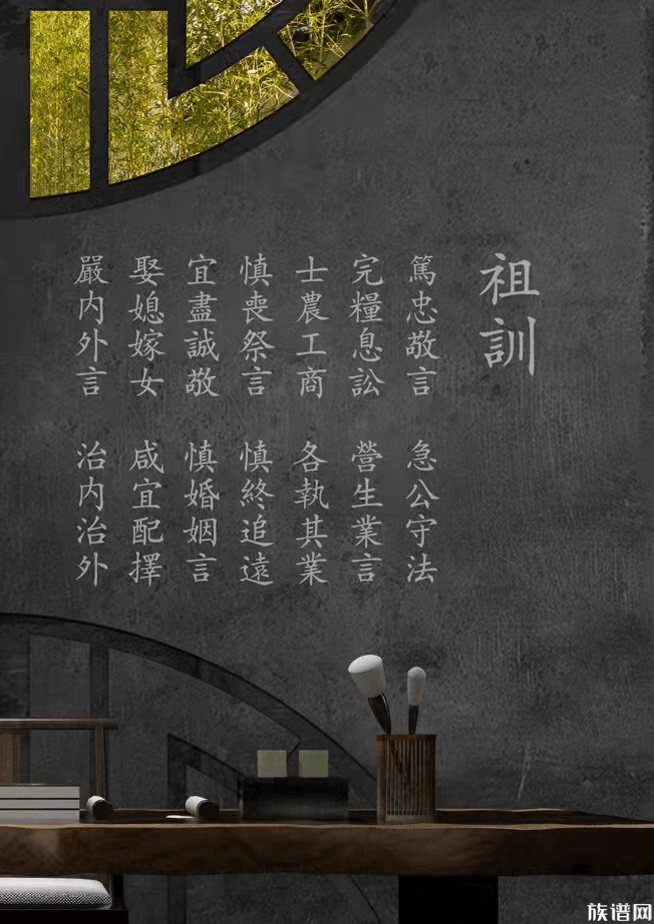 祖訓
篤忠敬言 急公守法
完糧息訟 營生業言
士農工商 各執其業
慎喪祭言 慎終追遠
宜盡誠敬 慎婚姻言
娶媳嫁女 咸宜配擇
嚴内外言 治内治外
族谱网